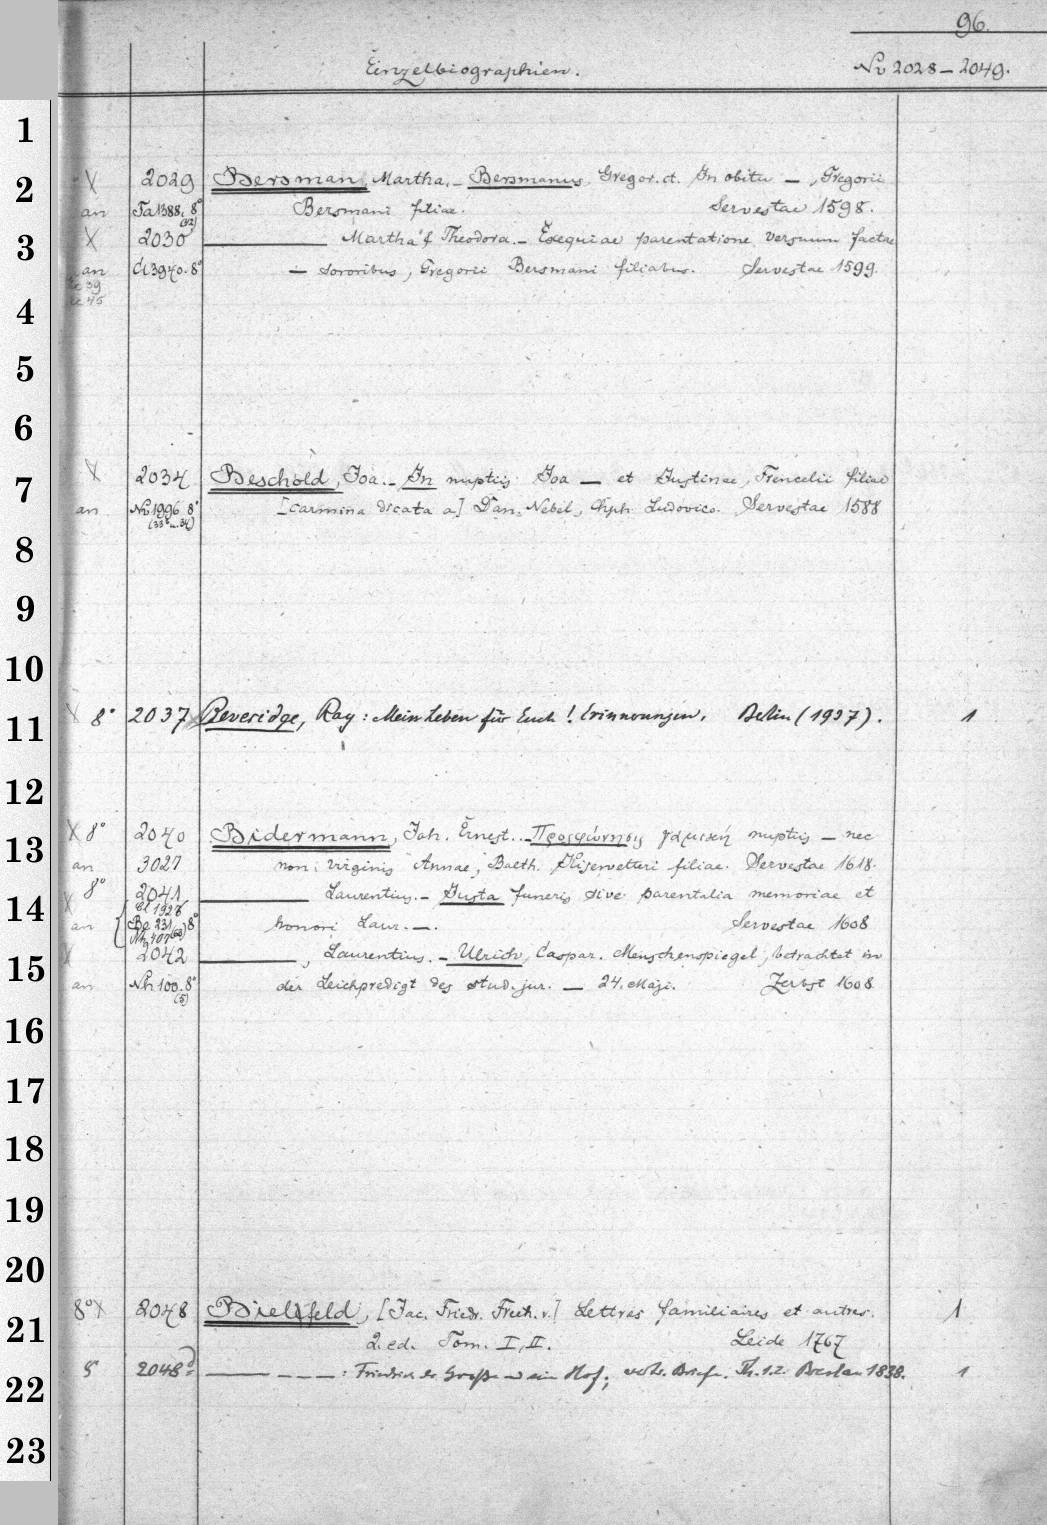 96.
Einzelbiographien. Nr. 2028 – 2049.
1
2 X 2029 Bersman, Martha. – Bersmanus, Gregor. ct. In obitu — , Gregorii
an Fa 1388. 8° (32) Bersmani filiae. Servestae 1598.
3 X 2030 ——— Martha & Theodora. – Exequiae parentatione versuum factae
an 8° — sororibus, Gregorii Bersmani filiabus. Servestae 1599.
4
5
6
7 X 2034 Beschold, Joa. – In nuptiis Joa — et Justinae, Frencelii filiae
an 1996 8° [carmina dicata a] Dan. Nebel, Chph. Ludovico. Servestae 1588
8
9
10
11 X 8° 2037 Beveridge, Ray: Mein Leben für Euch! Erinnerungen. Berlin (1937). 1
12
13 X 8° 2040 Bidermann, Joh. Ernest. – Προσφώνησις γαμική nuptiis — nec
an 3027 non virginis Annae, Barth. Kisewetteri filiae. Servestae 1618.
14 X 8° 2041 ——— Laurentius. – Justa funeris sive parentalia memoriae et
an 8° honori Laur. —. Servestae 1608
15 X 2042 ———, Laurentius. – Ulrich, Caspar. Menschenspiegel, betrachtet in
an Nh 100. 8° (5) der Leichpredigt des stud. jur. — 24. Maji. Zerbst 1608
16
17
18
19
20
21 8° X 2048 Bielefeld, [Jac. Friedr. Freih. v.] Lettres familiaires et autres. 1
2. ed. Tom. I, II. Leide 1767
22 8° 2048a ——— – – – : Friedrich der Große und sein Hof; Th. 1.2. Breslau 1838. 1
23